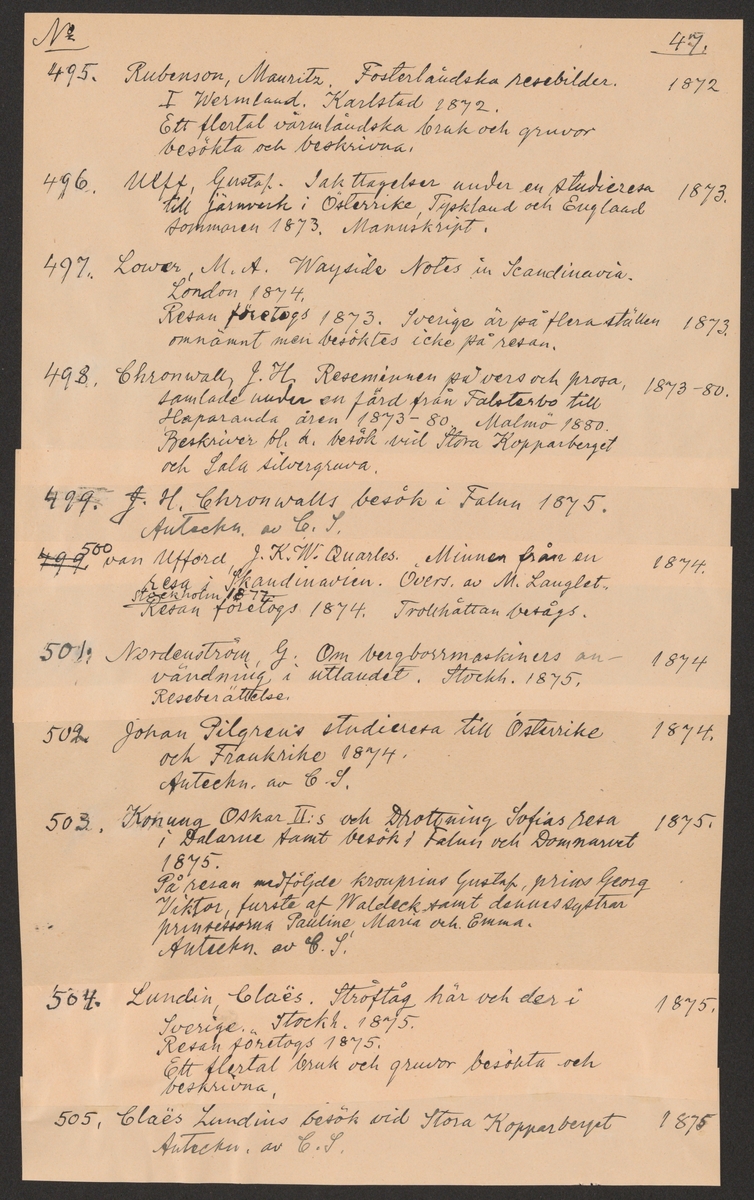 No 47.
495. Rubenson, Mauritz. Fosterländska resebilder. 1872
I Wermland. Karlstad 1872.
Ett flertal värmländska bruk och gruvor
besökta och beskrivna.
496. Uhff, Gustaf. Iakttagelser under en studieresa 1873.
till järnverk i Österrike, Tyskland och England
sommaren 1873. Manuskript.
497. Lower, M. A. Wayside Notes in Scandinavia.
London 1874.
Resan företogs 1873. Sverige är på flera ställen 1873.
omnämnt men besöktes icke på resan.
498. Chronwall, J. H. Reseminnen på vers och prosa, 1873-80.
samlade under en färd från Falsterbo till
Haparanda åren 1873-80. Malmö 1880.
Beskriver bl. a. besök vid Stora Kopparberget
och Sala silvergruva.
499. J. H. Chronwalls besök i Falun 1875.
Anteckn. av C. S.
499. 500 van Ufford, J. K. W. Quarles. Minnen från en 1874.
resa i Skandinavien. Övers. av M. Langlet.
Stockholm 1877
Resan företogs 1874. Trollhättan besågs.
501. Nordenström, G. Om bergborrmaskiners an- 1874
vändning i utlandet. Stockh. 1875.
Reseberättelse.
502. Johan Pilgrens studieresa till Österrike 1874.
och Frankrike 1874.
Anteckn. av C. S.
503. Konung Oskar II:s och Drottning Sofias resa 1875.
i Dalarne samt besök i Falun och Domnarvet
1875.
På resan medföljde kronprins Gustaf, prins Georg
Viktor, furste af Waldeck samt dennes systrar
prinsessorna Pauline, Maria och Emma.
Anteckn. av C. S.
504. Lundin, Claës. Ströftåg här och der i 1875.
Sverige. Stockh. 1875.
Resan företogs 1875.
Ett flertal bruk och gruvor besökta och
beskrivna.
505. Claës Lundins besök vid Stora Kopparberget 1875
Anteckn. av C. S.